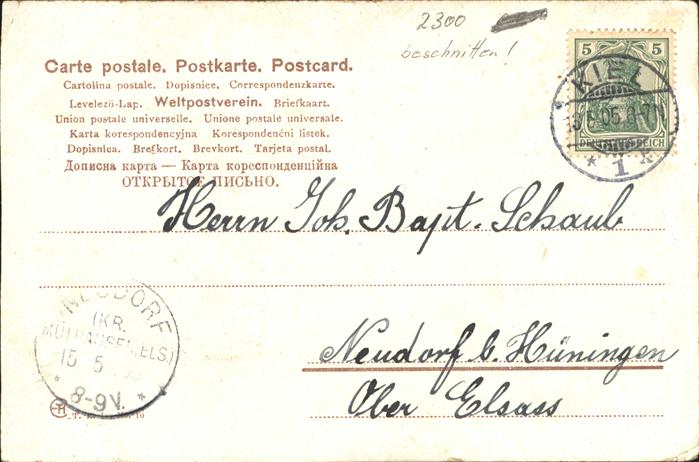 2300
beschnitten!
Carte postale. Postkarte. Postcard.
Cartolina postale. Dopisnice. Correspondenzkarte.
Levelező-Lap. Weltpostverein. Briefkaart.
Union postale universelle. Unione postale universale.
Karta korespondencyjna Korespondenční lístek.
Dopisnica. Brefkort. Brevkort. Tarjeta postal.
Дописна карта — Карта кореспонденційна
ОТКРЫТОЕ ПИСЬМО.
5 5
DEUTSCHES REICH
KIEL
05
1
Herrn Joh. Bapt. Schaub
Neudorf b. Hüningen
Ober Elsass
NEUDORF
(KR.
MÜLHAUSEN, ELS)
15 5
8-9V.